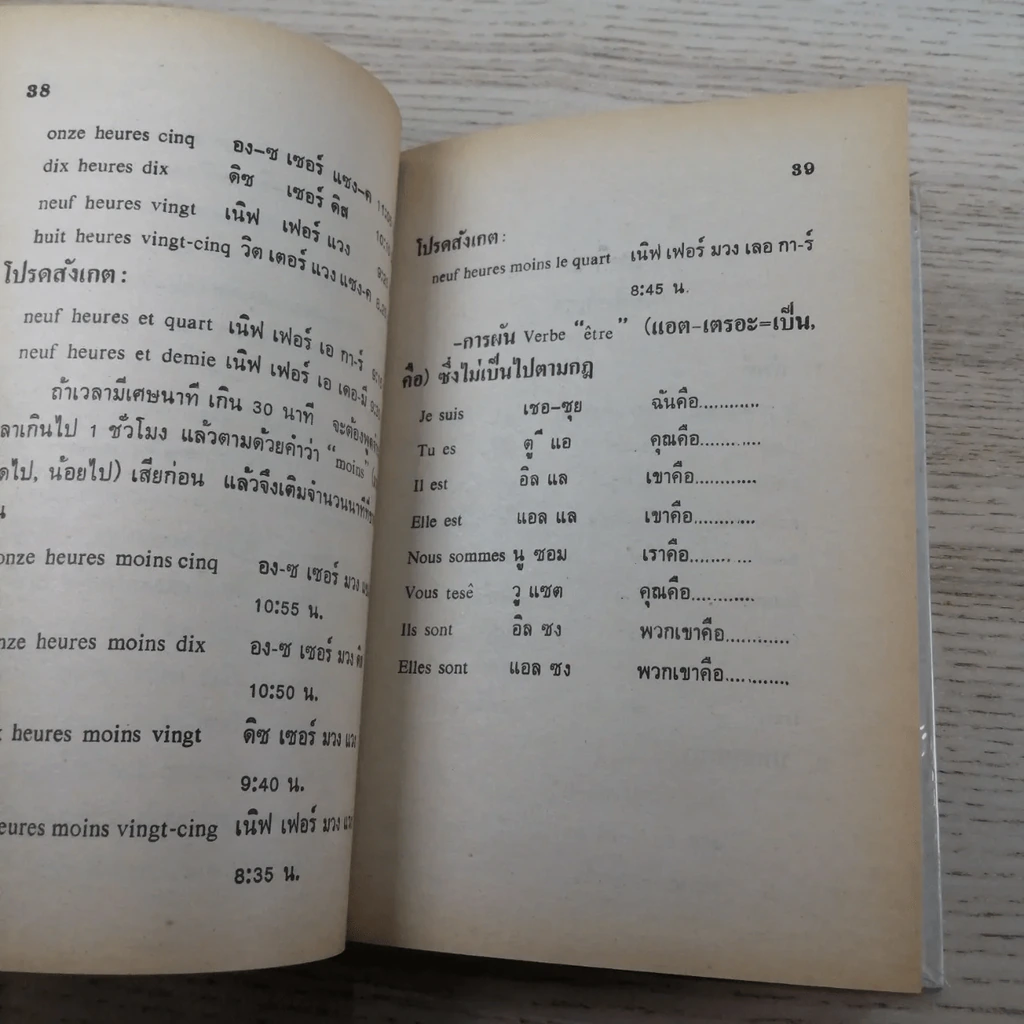 38
onze heures cinq อง-ซ เซอร์ แซง-ค
dix heures dix ดิซ เซอร์ ดิส
neuf heures vingt เนิฟ เฟอร์ แวง
huit heures vingt-cinq วิต เตอร์ แวง แซง-ค
โปรดสังเกต :
neuf heures et quart เนิฟ เฟอร์ เอ กา-ร์
neuf heures et demie เนิฟ เฟอร์ เอ เดอ-มี
ถ้าเวลามีเศษนาที เกิน 30 นาที จะต้องพูด
ลาเกินไป 1 ชั่วโมง แล้วตามด้วยคำว่า "moins"
ดไป, น้อยไป) เสียก่อน แล้วจึงเติมจำนวนนาทีที่
น
onze heures moins cinq อง-ซ เซอร์ มวง
10:55 น.
nze heures moins dix อง-ซ เซอร์ มวง
10:50 น.
x heures moins vingt ดิซ เซอร์ มวง
9:40 น.
eures moins vingt-cing เนิฟ เฟอร์ มวง
8:35 น.
39
โปรดสังเกต :
neuf heures moins le quart เนิฟ เฟอร์ มวง เลอ กา-ร์
8:45 น.
-การผัน Verbe "être" (แอต-เตรอะ=เป็น,
คือ) ซึ่งไม่เป็นไปตามกฎ
Je suis เชอ-ซุย ฉันคือ............
Tu es ตู ี แอ คุณคือ............
Il est อิล แล เขาคือ............
Elle est แอล แล เขาคือ............
Nous sommes นู ซอม เราคือ........ ...
Vous tesê วู แซต คุณคือ............
Ils sont อิล ซง พวกเขาคือ............
Elles sont แอล ซง พวกเขาคือ............